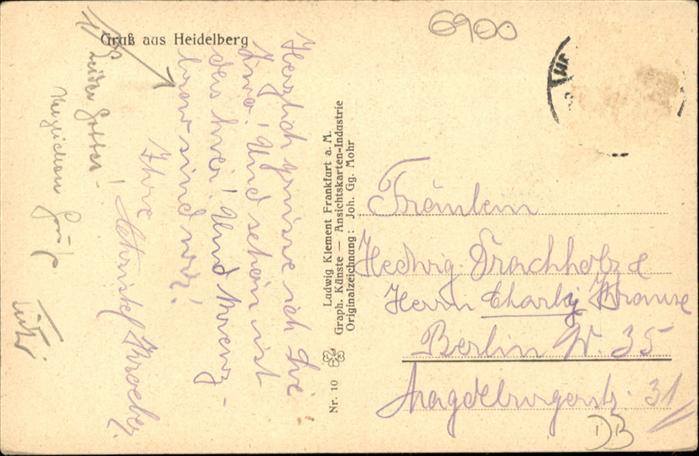 Gruß aus Heidelberg
6900
Herzlich grüsse ich Sie
Zwo! Und schön ist
das hier! Und kreuz-
brav sind wir!
Ihre
Christel
leider Gottes!
Herzlichen Gruß
Ludwig Klement Frankfurt a. M.
Graph. Künste — Ansichtskarten-Industrie
Originalzeichnung: Joh. Gg. Mohr
Nr. 10
Fräulein
Hedwig Trachholz
Herrn Charly Krause
Berlin W. 35
Magdeburgerstr. 31
DB